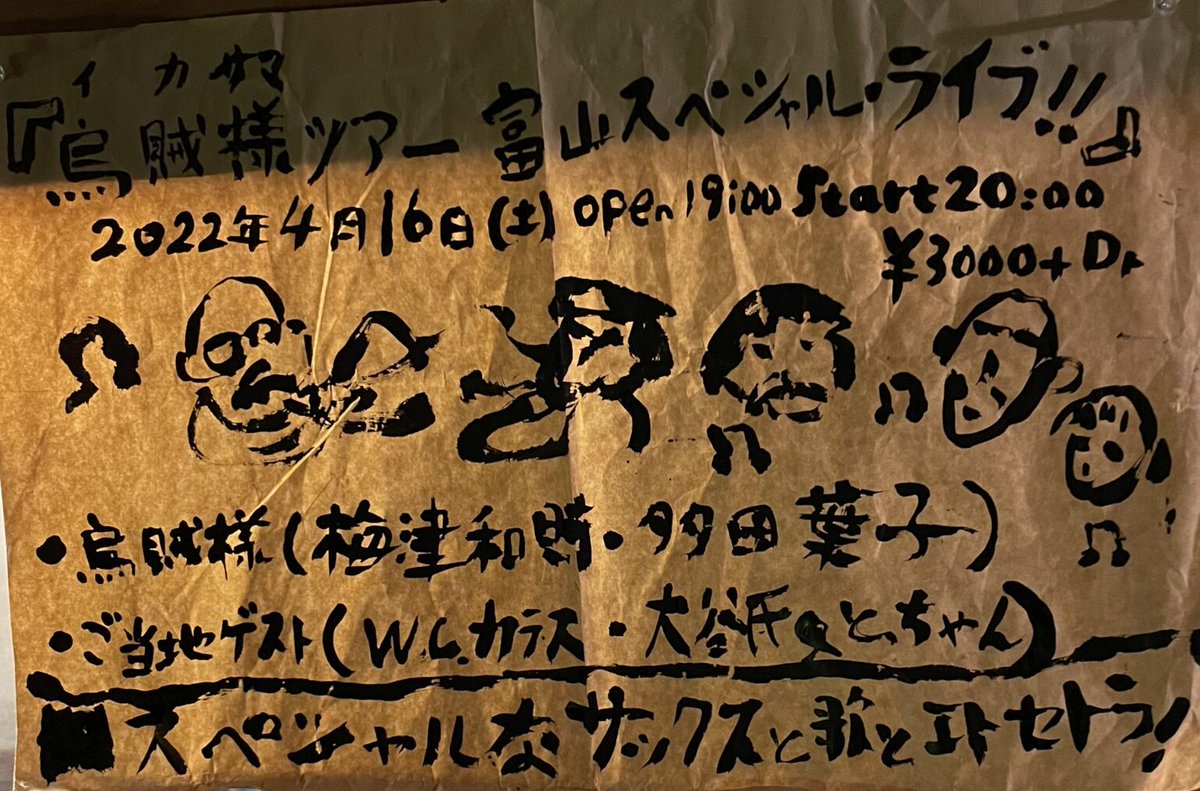 イカサマ
『烏賊様ツアー富山スペシャル・ライブ!!』
2022年4月16日(土) open 19:00 Start 20:00
¥3000+Dr
・烏賊様(梅津和時・多田葉子)
・ご当地ゲスト(W.C.カラス・大谷氏&とっちゃん)
■スペシャルなサックスと歌とエトセトラ!